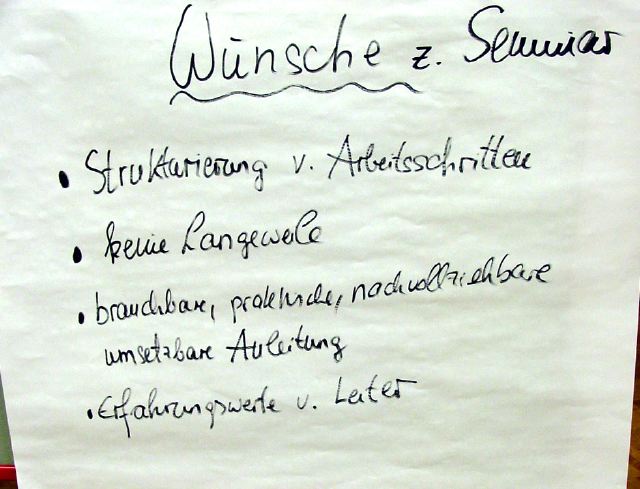 Wünsche z. Seminar
• Strukturierung v. Arbeitsschritten
• keine Langeweile
• brauchbare, praktische, nachvollziehbare
umsetzbare Anleitung
• Erfahrungswerte v. Leiter